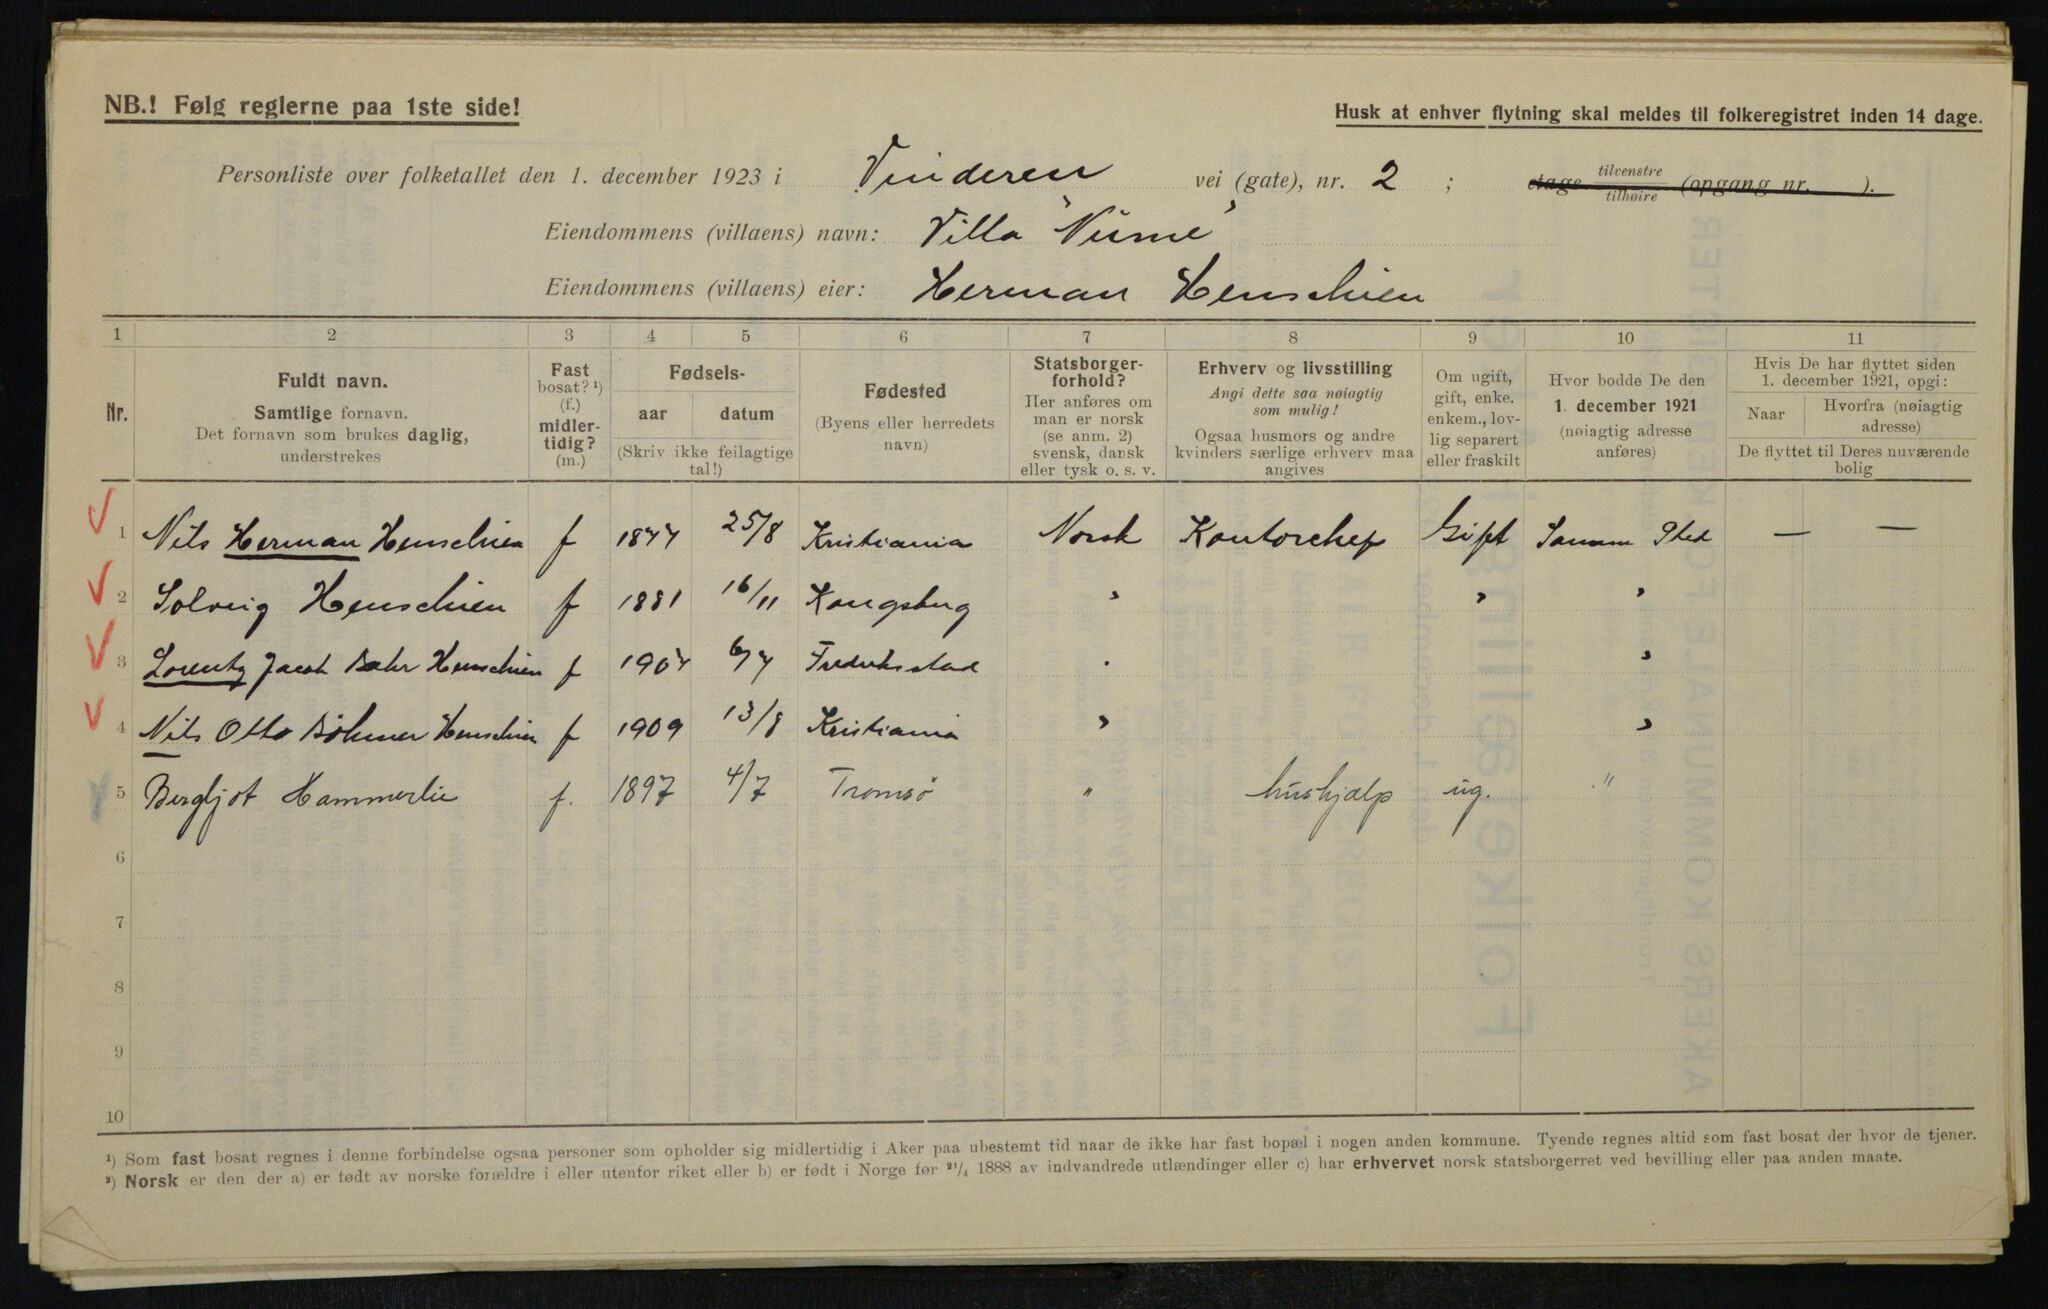 NB.! Følg reglerne paa 1ste side!
Husk at enhver flytning skal meldes til folkeregistret inden 14 dage.
Personliste over folketallet den 1. december 1923 i Vinderen vei (gate), nr. 2 ; etage tilvenstre tilhøire (opgang nr. ).
Eiendommens (villaens) navn: Villa
Eiendommens (villaens) eier: Herman Henschien
1 2 3 4 5 6 7 8 9 10 11
Nr.
Fuldt navn.
Samtlige fornavn.
Det fornavn som brukes daglig,
understrekes
Fast
bosat? ¹)
(f.)
midler-
tidig?
(m.)
Fødsels-
aar datum
(Skriv ikke feilagtige
tal!)
Fødested
(Byens eller herredets
navn)
Statsborger-
forhold?
Her anføres om
man er norsk
(se anm. 2)
svensk, dansk
eller tysk o. s. v.
Erhverv og livsstilling
Angi dette saa nøiagtig
som mulig!
Ogsaa husmors og andre
kvinders særlige erhverv maa
angives
Om ugift,
gift, enke.
enkem., lov-
lig separert
eller fraskilt
Hvor bodde De den
1. december 1921
(nøiagtig adresse
anføres)
Hvis De har flyttet siden
1. december 1921, opgi:
Naar
Hvorfra (nøiagtig
adresse)
De flyttet til Deres nuværende
bolig
1 Nils Herman Henschien f 1877 25/8 Kristiania Norsk Kontorchef Gift Samme Sted — —
2 Solveig Henschien f 1881 16/11 Kongsberg " " "
3 Lorentz Jacob Henschien f 1907 6/7 Fredriksstad " "
4 Nils Otto Böhmer Henschien f 1909 13/8 Kristiania " "
5 Bergljot Hammerlie f. 1897 4/7 Tromsö " hushjælp ug. "
6
7
8
9
10
¹) Som fast bosat regnes i denne forbindelse ogsaa personer som opholder sig midlertidig i Aker paa ubestemt tid naar de ikke har fast bopæl i nogen anden kommune. Tyende regnes altid som fast bosat der hvor de tjener.
²) Norsk er den der a) er født av norske forældre i eller utenfor riket eller b) er født i Norge før ²¹/₄ 1888 av indvandrede utlændinger eller c) har erhvervet norsk statsborgerret ved bevilling eller paa anden maate.